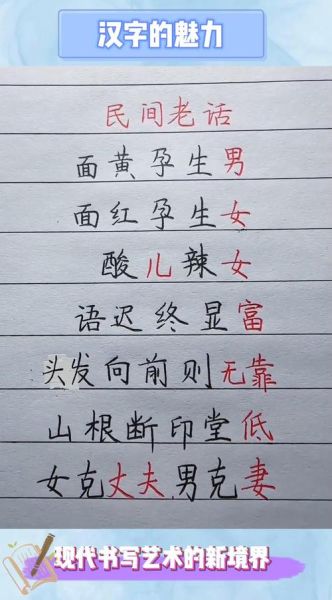 汉字的魅力
民间老话
面黄孕生男
面红孕生女
酸儿辣女
语迟终显富
头发向前则无靠
山根断印堂低
女克丈夫男克妻
现代书写艺术的新境界